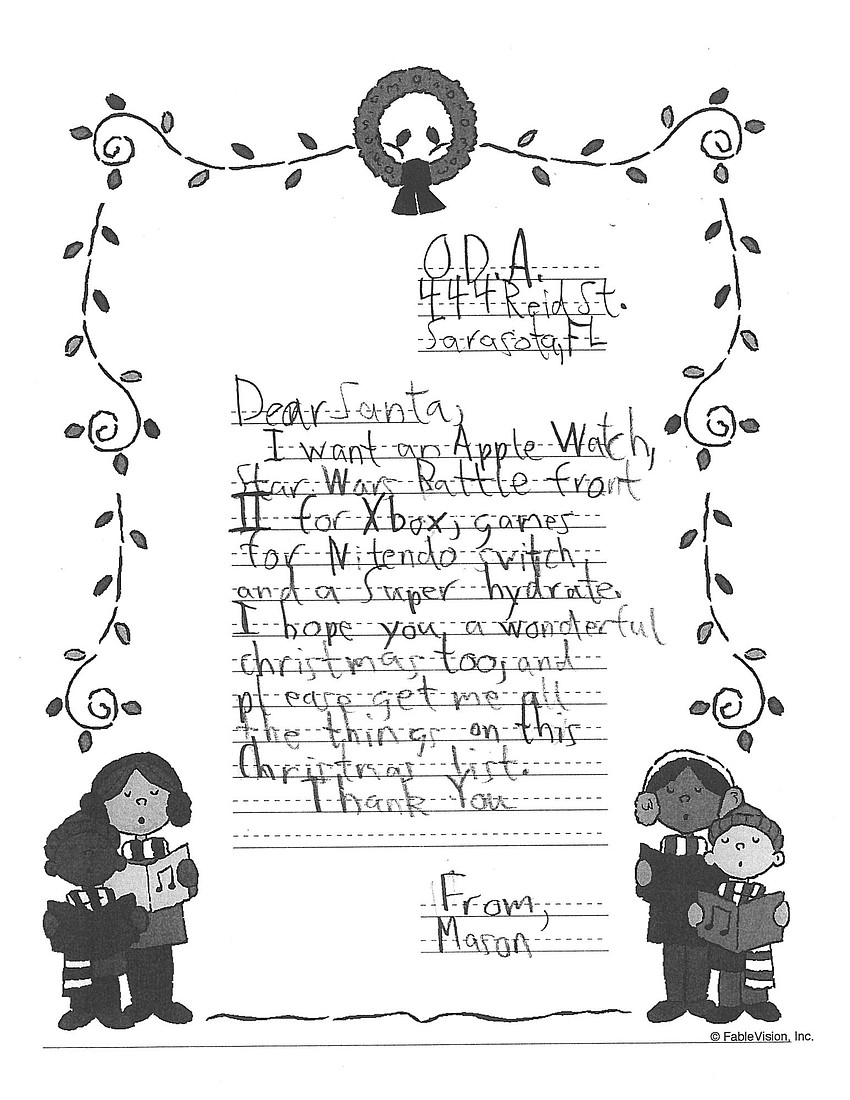 O.D.A.
444 Reid St.
Sarasota, FL
Dear Santa,
I want an Apple Watch,
Star Wars Battle front
II for Xbox, games
for Nitendo switch,
and a Super hydrate.
I hope you a wonderful
christmas too, and
please get me all
the things on this
Christmas list.
Thank You
From,
Mason
© FableVision, Inc.